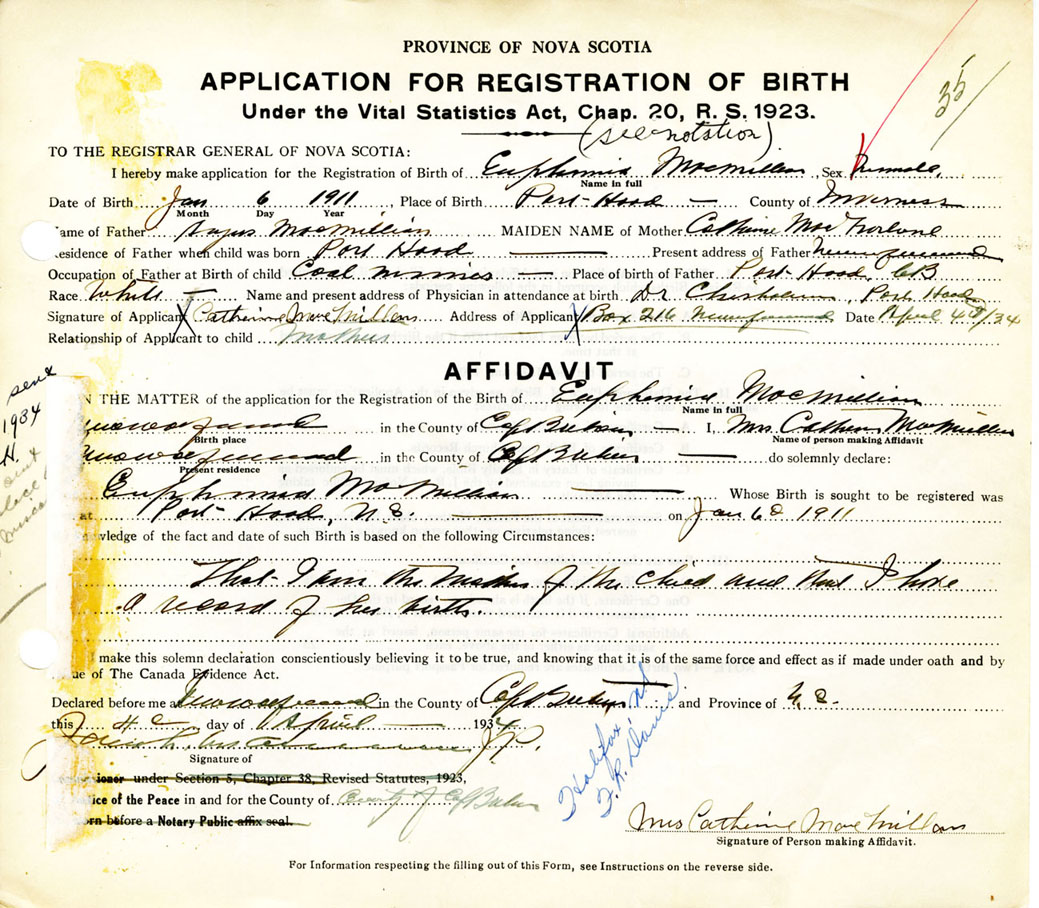 PROVINCE OF NOVA SCOTIA
APPLICATION FOR REGISTRATION OF BIRTH
Under the Vital Statistics Act, Chap. 20, R. S. 1923.
35
(see notation)
TO THE REGISTRAR GENERAL OF NOVA SCOTIA:
I hereby make application for the Registration of Birth of Euphemia Macmillian, Sex Female
Name in full
Date of Birth Jan 6 1911, Place of Birth Port-Hood — County of Inverness
Month Day Year
Name of Father Angus Macmillian MAIDEN NAME of Mother Catherine Mac
Residence of Father when child was born Port Hood — Present address of Father
Occupation of Father at Birth of child Coal — Place of birth of Father Port-Hood, CB
Race White — Name and present address of Physician in attendance at birth Dr Chisholm, Port Hood
Signature of Applicant X Catherine MacMillan Address of Applicant X Box 216 Date April 4th/34
Relationship of Applicant to child Mother
AFFIDAVIT
IN THE MATTER of the application for the Registration of the Birth of Euphemia Macmillian
Name in full
in the County of Cape Breton — I, Mrs. Catherine MacMillan
Birth place Name of person making Affidavit
in the County of Cape Breton — do solemnly declare:
Present residence
Euphemia MacMillian — Whose Birth is sought to be registered was
at Port-Hood, N.S. — on Jan 6 1911
wledge of the fact and date of such Birth is based on the following Circumstances:
That I am the Mother of the child and that I have
a record of her birth.
make this solemn declaration conscientiously believing it to be true, and knowing that it is of the same force and effect as if made under oath and by
ue of The Canada Evidence Act.
Declared before me at in the County of Cape Breton and Province of N.S.
this 4 day of April — 1934
J.P.
Signature of
ioner under Section 5, Chapter 38, Revised Statutes, 1923,
ice of the Peace in and for the County of County of Cape Breton
rn before a Notary Public affix seal.
sent
1934
H.
Halifax, NS
F. R. Davis
Mrs Catherine MacMillan
Signature of Person making Affidavit.
For Information respecting the filling out of this Form, see Instructions on the reverse side.